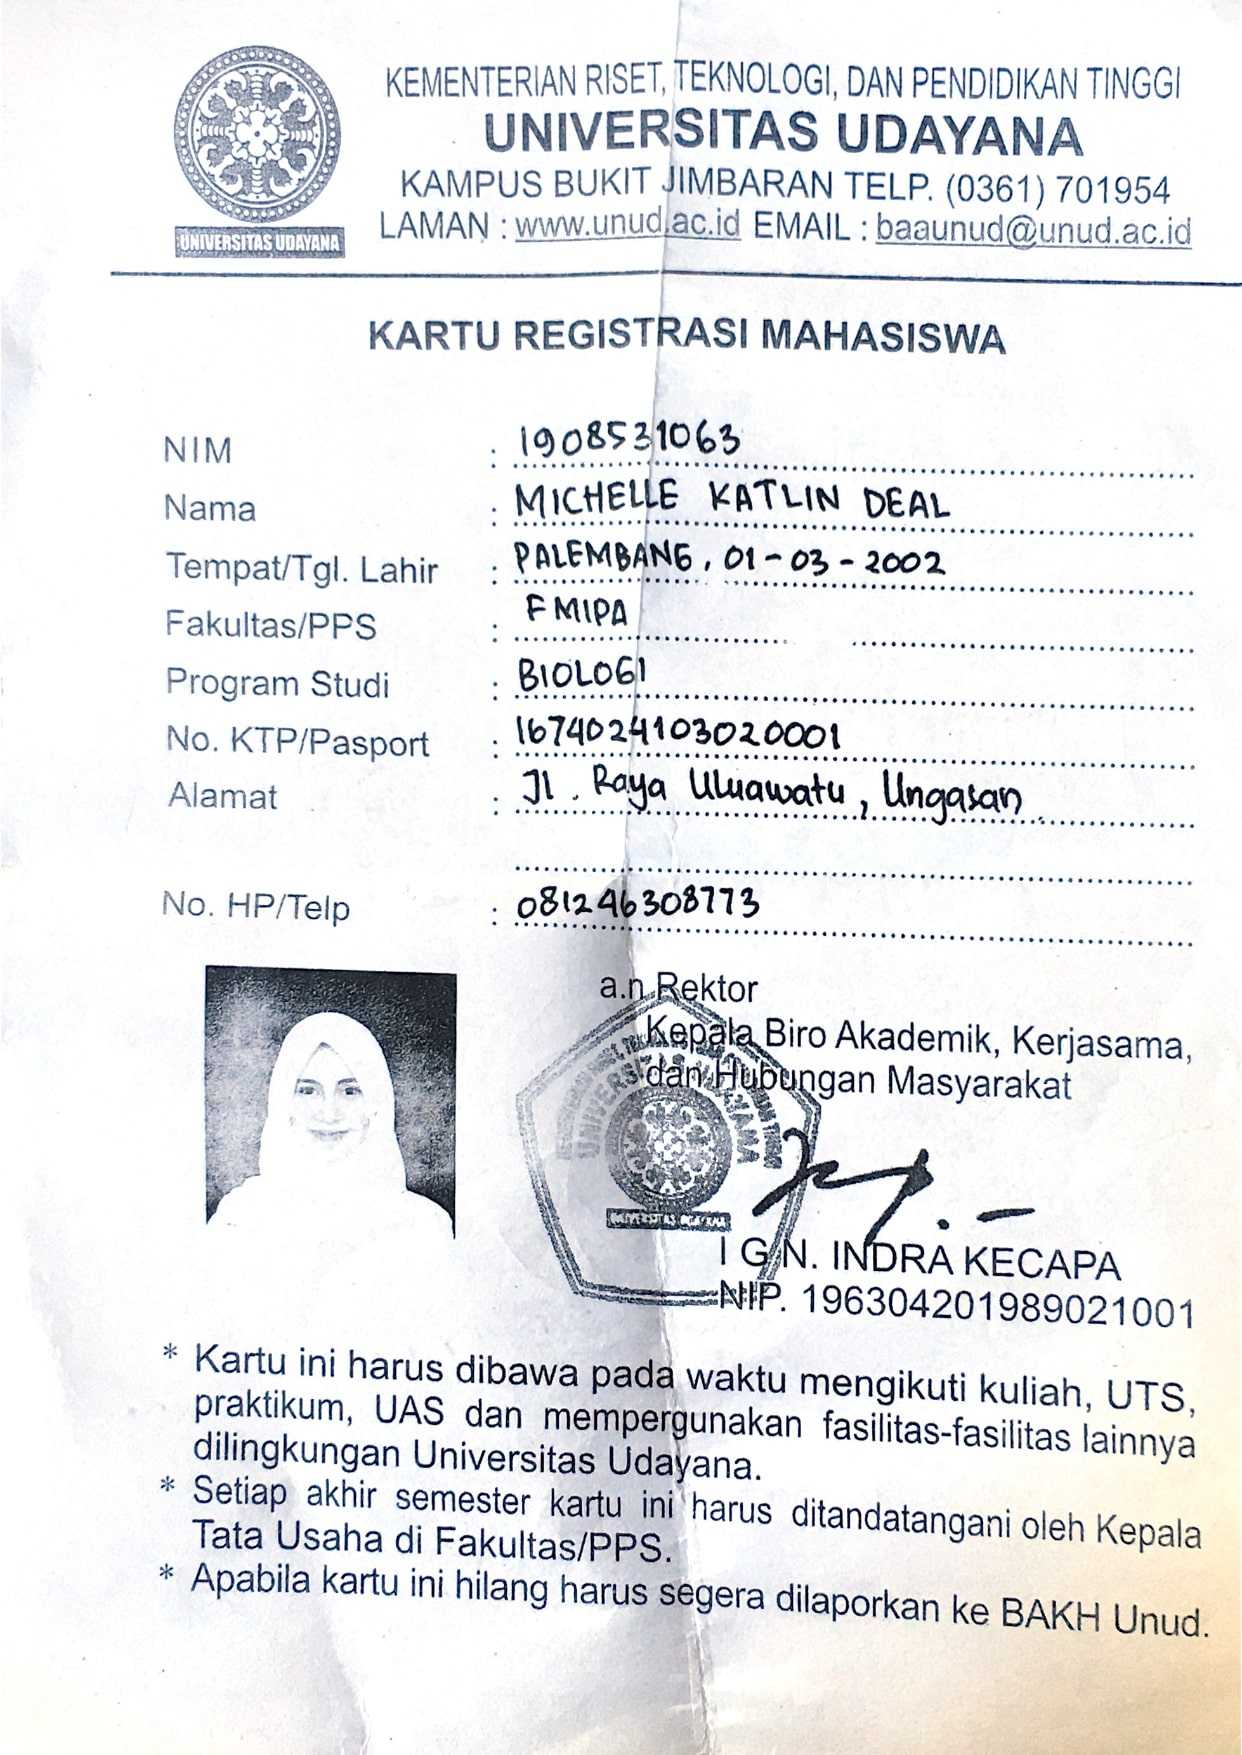 KEMENTERIAN RISET, TEKNOLOGI, DAN PENDIDIKAN TINGGI
UNIVERSITAS UDAYANA
KAMPUS BUKIT JIMBARAN TELP. (0361) 701954
LAMAN : www.unud.ac.id EMAIL : baaunud@unud.ac.id
UNIVERSITAS UDAYANA
KARTU REGISTRASI MAHASISWA
NIM : 1908531063
Nama : MICHELLE KATLIN DEAL
Tempat/Tgl. Lahir : PALEMBANG, 01-03-2002
Fakultas/PPS : FMIPA
Program Studi : BIOLOGI
No. KTP/Pasport : 1674024103020001
Alamat : Jl. Raya Uluawatu, Ungasan
No. HP/Telp : 081246308773
a.n Rektor
Kepala Biro Akademik, Kerjasama,
dan Hubungan Masyarakat
UNIVERSITAS UDAYANA
UNIVERSITAS UDAYANA
I G.N. INDRA KECAPA
NIP. 196304201989021001
* Kartu ini harus dibawa pada waktu mengikuti kuliah, UTS,
praktikum, UAS dan mempergunakan fasilitas-fasilitas lainnya
dilingkungan Universitas Udayana.
* Setiap akhir semester kartu ini harus ditandatangani oleh Kepala
Tata Usaha di Fakultas/PPS.
* Apabila kartu ini hilang harus segera dilaporkan ke BAKH Unud.